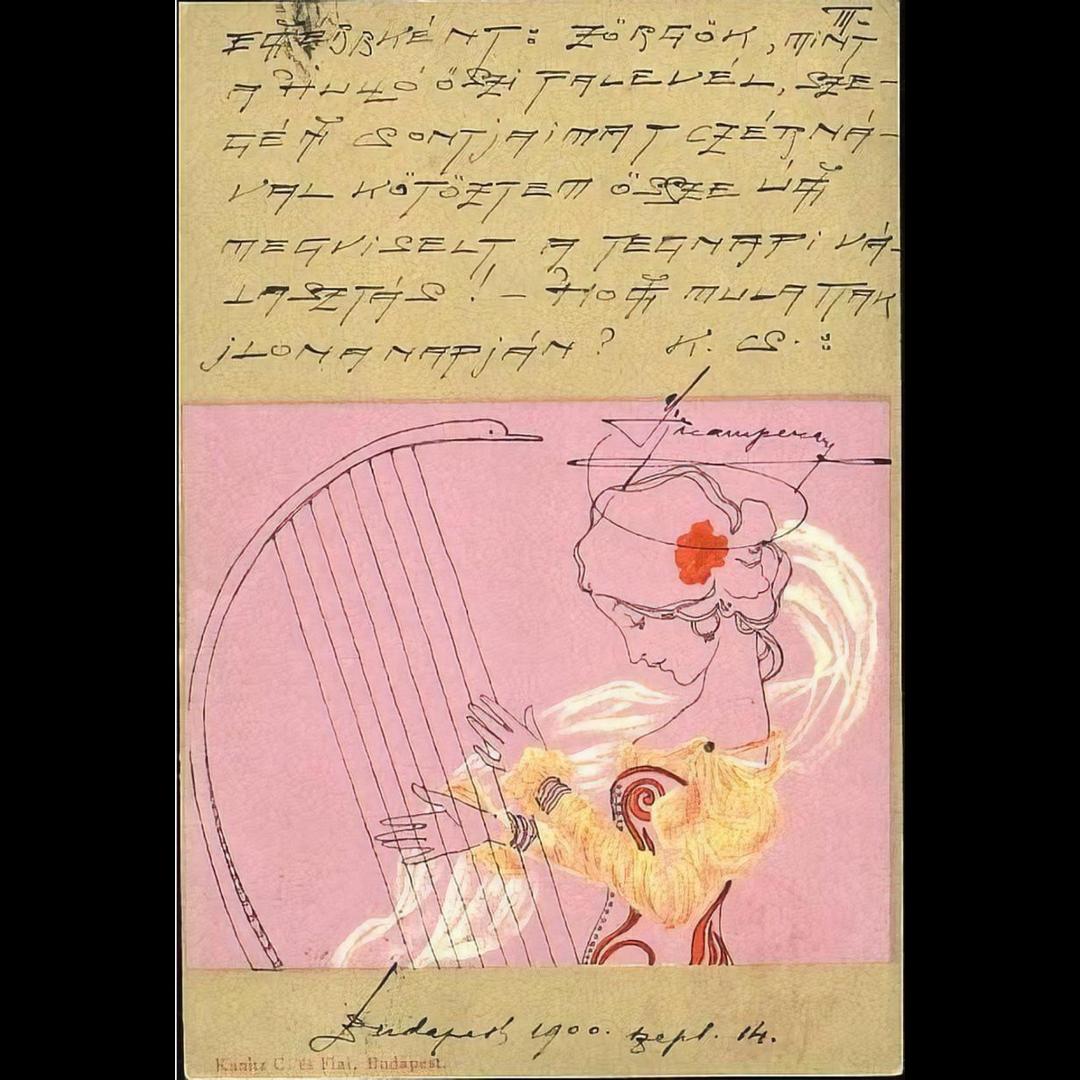 III.
EGYÉBKÉNT: ZÖRGÖK, MINT
A HULLÓ ŐSZI FALEVÉL, SZE-
GÉNY CSONTJAIMAT CZÉRNÁ-
VAL KÖTÖZTEM ÖSSZE ÚGY
MEGVISELT A TEGNAPI VÁ-
LASZTÁS! – HOGY MULATTAK
JLONA NAPJÁN? K. CS.:
Budapest 1900. szept. 14.
Kanitz C. és Fiai, Budapest.